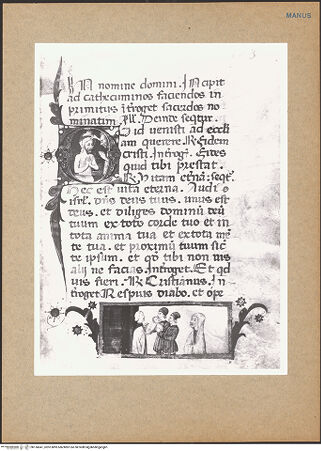 MANUS
In nomine domini. Incipit
ad cathecuminos faciendos in
primitus itroget sacerdos no
minatim. Deinde seqtur.
Quid venisti ad eccli
am querere. R Fidem
cristi. Introg. Fides
quid tibi prestat.
R Vitam etna: seqt
hec est vita eterna. Audi o
isrl. dns deus tuus. unus est
deus. et diliges dominu deu
tuum ex toto corde tuo et in
tota anima tua et extota me
te tua. et proximu tuum sic
te ipsum. et qd tibi non uis
alij ne facias. Introget. Et qd
uis fieri. R Cristianus. In
troget R espuis diabo. et ope